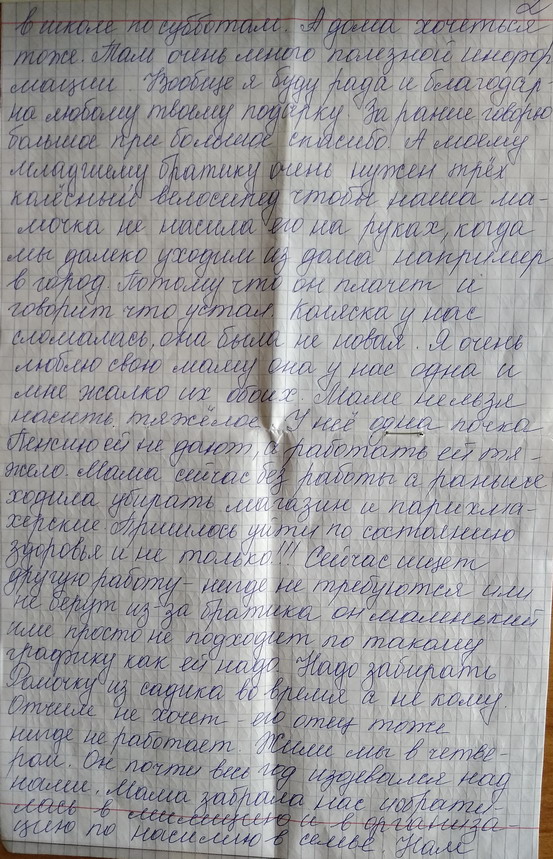 2
в школе по субботам. А дома хочеться
тоже. Там очень много полезной инфор
мации. Вообще я буду рада и благодар
на любому твоему подарку. За рание говорю
большое при большое спасибо. А моему
младшему братику очень нужен трёх
колёсный велосипед чтобы наша ма-
мочка не насила его на руках, когда
мы далеко уходим из дома например
в город. Потому что он плачет и
говорит что устал. Коляска у нас
сломалась, она была не новая. Я очень
люблю свою маму она у нас одна и
мне жалко их обоих. Маме нельзя
насить тяжёлое. У неё одна почка
Пенсию ей не дают, а работать ей тя-
жело. Мама сейчас без работы а раньше
ходила убирать магазин и парихма-
херские Пришлось уйти по состоянию
здоровья и не только!!! Сейчас ищет
другую работу - нигде не требуются или
не берут из-за братика он маленький
или просто не подходит по такому
графику как ей надо. Надо забирать
Ромочку из садика во время а не кому
Отчим не хочет - его отец тоже
нигде не работает. Жили мы в четве-
ром. Он почти весь год издевался над
нами. Мама забрала нас и обрати-
лась в милицию и в организа-
цию по насилию в семье. Нам